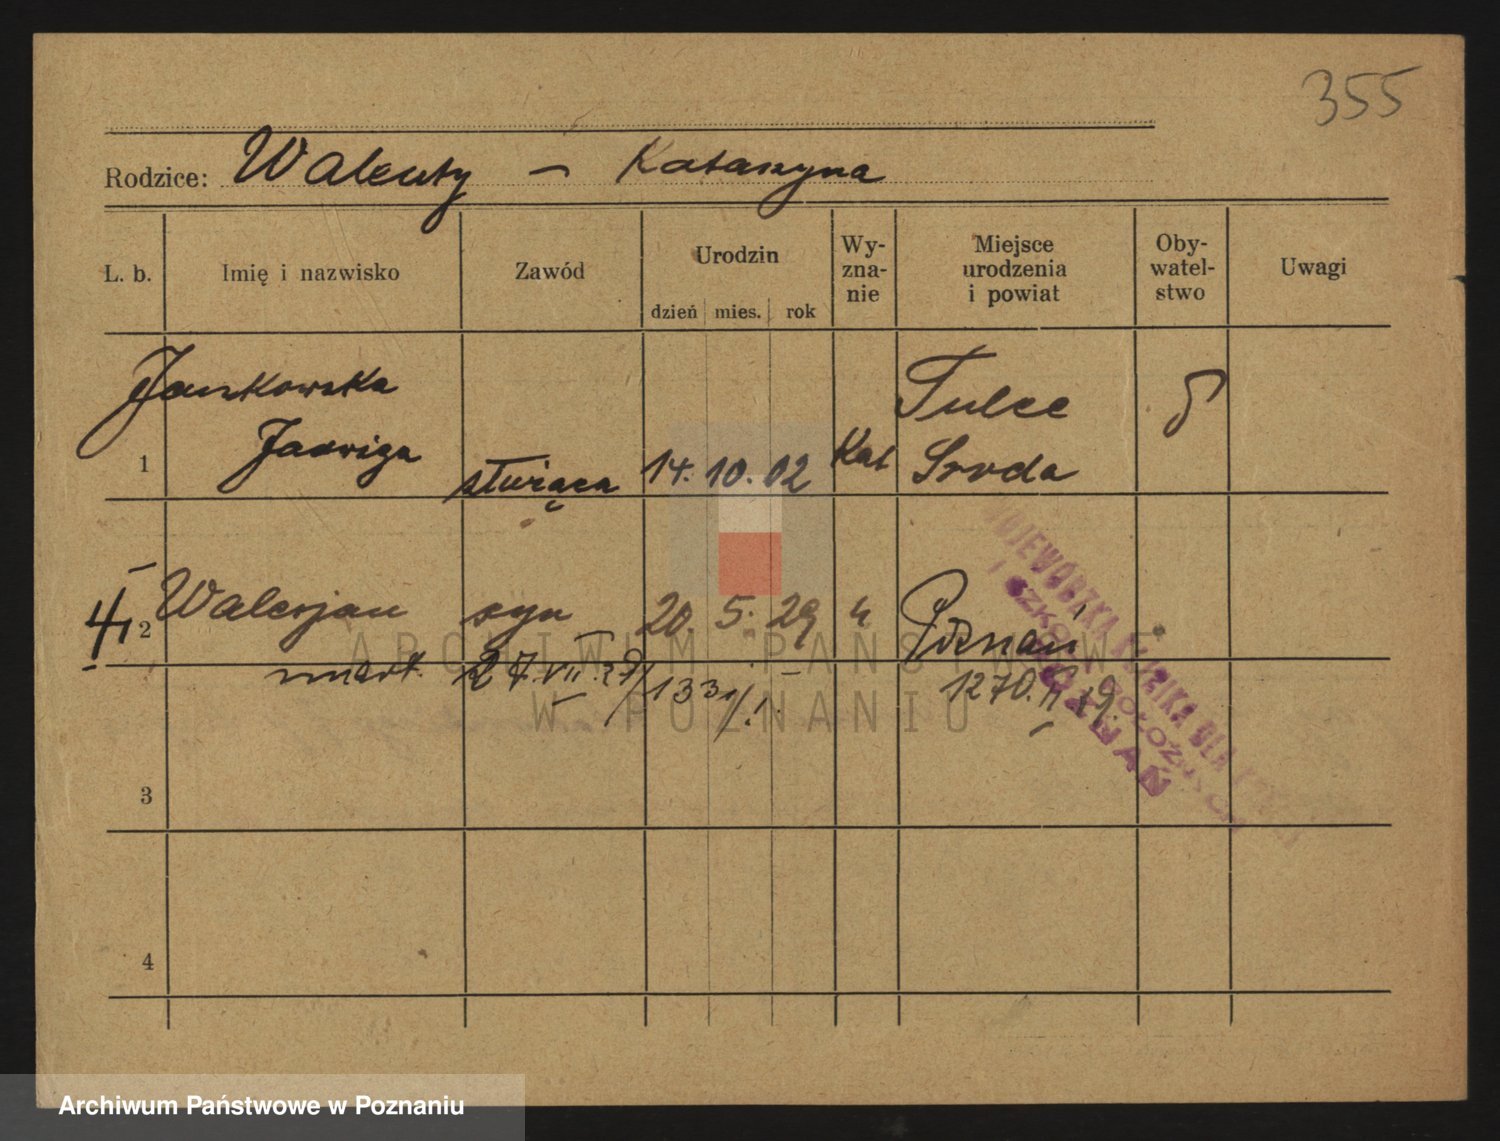 355
Rodzice: Walenty – Katarzyna
L. b. Imię i nazwisko Zawód Urodzin dzień mies. rok Wy-zna-nie Miejsce urodzenia i powiat Oby-watel-stwo Uwagi
Jankowska Tulce
1 Jadwiga służąca 14. 10. 02 Kat Sroda
4, 2 Walerjan syn 20 5. 29 Poznań
zmarł. 27.VII.29/1331/I. 1270. II 29.
WOJEWÓDZKA KLINIKA DLA
POZNAŃ
3
4
ARCHIWUM PAŃSTWOWE
W POZNANIU
Archiwum Państwowe w Poznaniu